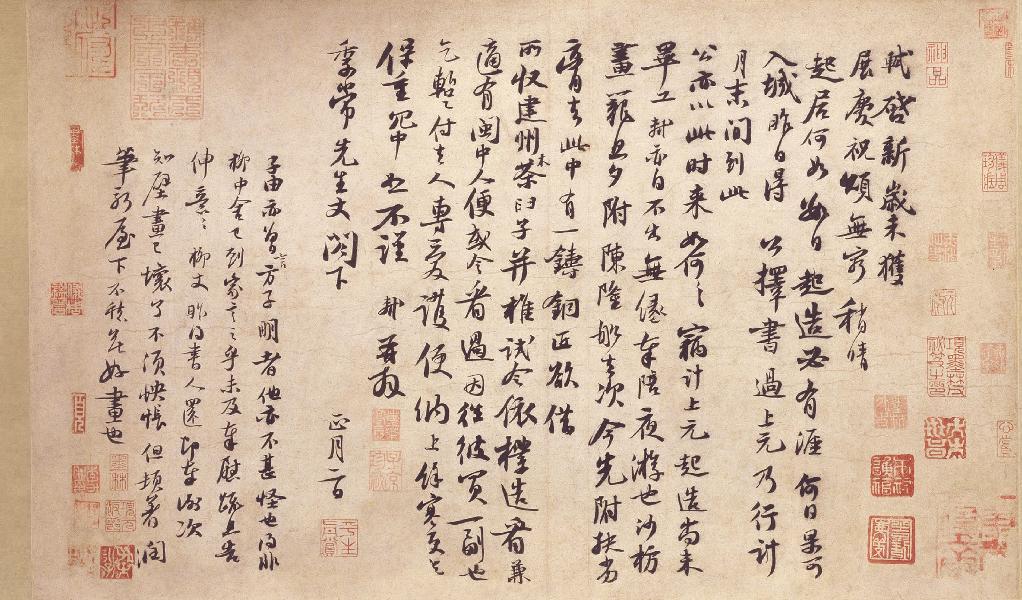 軾啓新歲未獲
展慶祝頌無窮稍晴
起居何如數日起造必有涯何日果可
入城昨日得公擇書過上元乃行計
月末間到此
公亦以此時來如何々竊計上元起造尚未
畢工軾亦自不出無緣奉陪夜遊也沙枋
畫籠旦夕附陳隆船去次今先附扶劣
膏去此中有一鑄銅匠欲借
所收建州木茶臼子并椎試令依樣造看兼
適有閩中人便或令看過因往彼買一副也
乞暫付去人專愛護便納上餘寒更乞
保重冗中恕不謹軾再拜
季常先生丈閤下正月二日
子由亦曾言方子明者他亦不甚怪也得非
柳中舍已到家言之乎未及奉慰疏且告
伸意々柳丈昨得書人還即奉謝次
知壁畫已壞了不須怏悵但頓著潤
筆新屋下不愁無好畫也